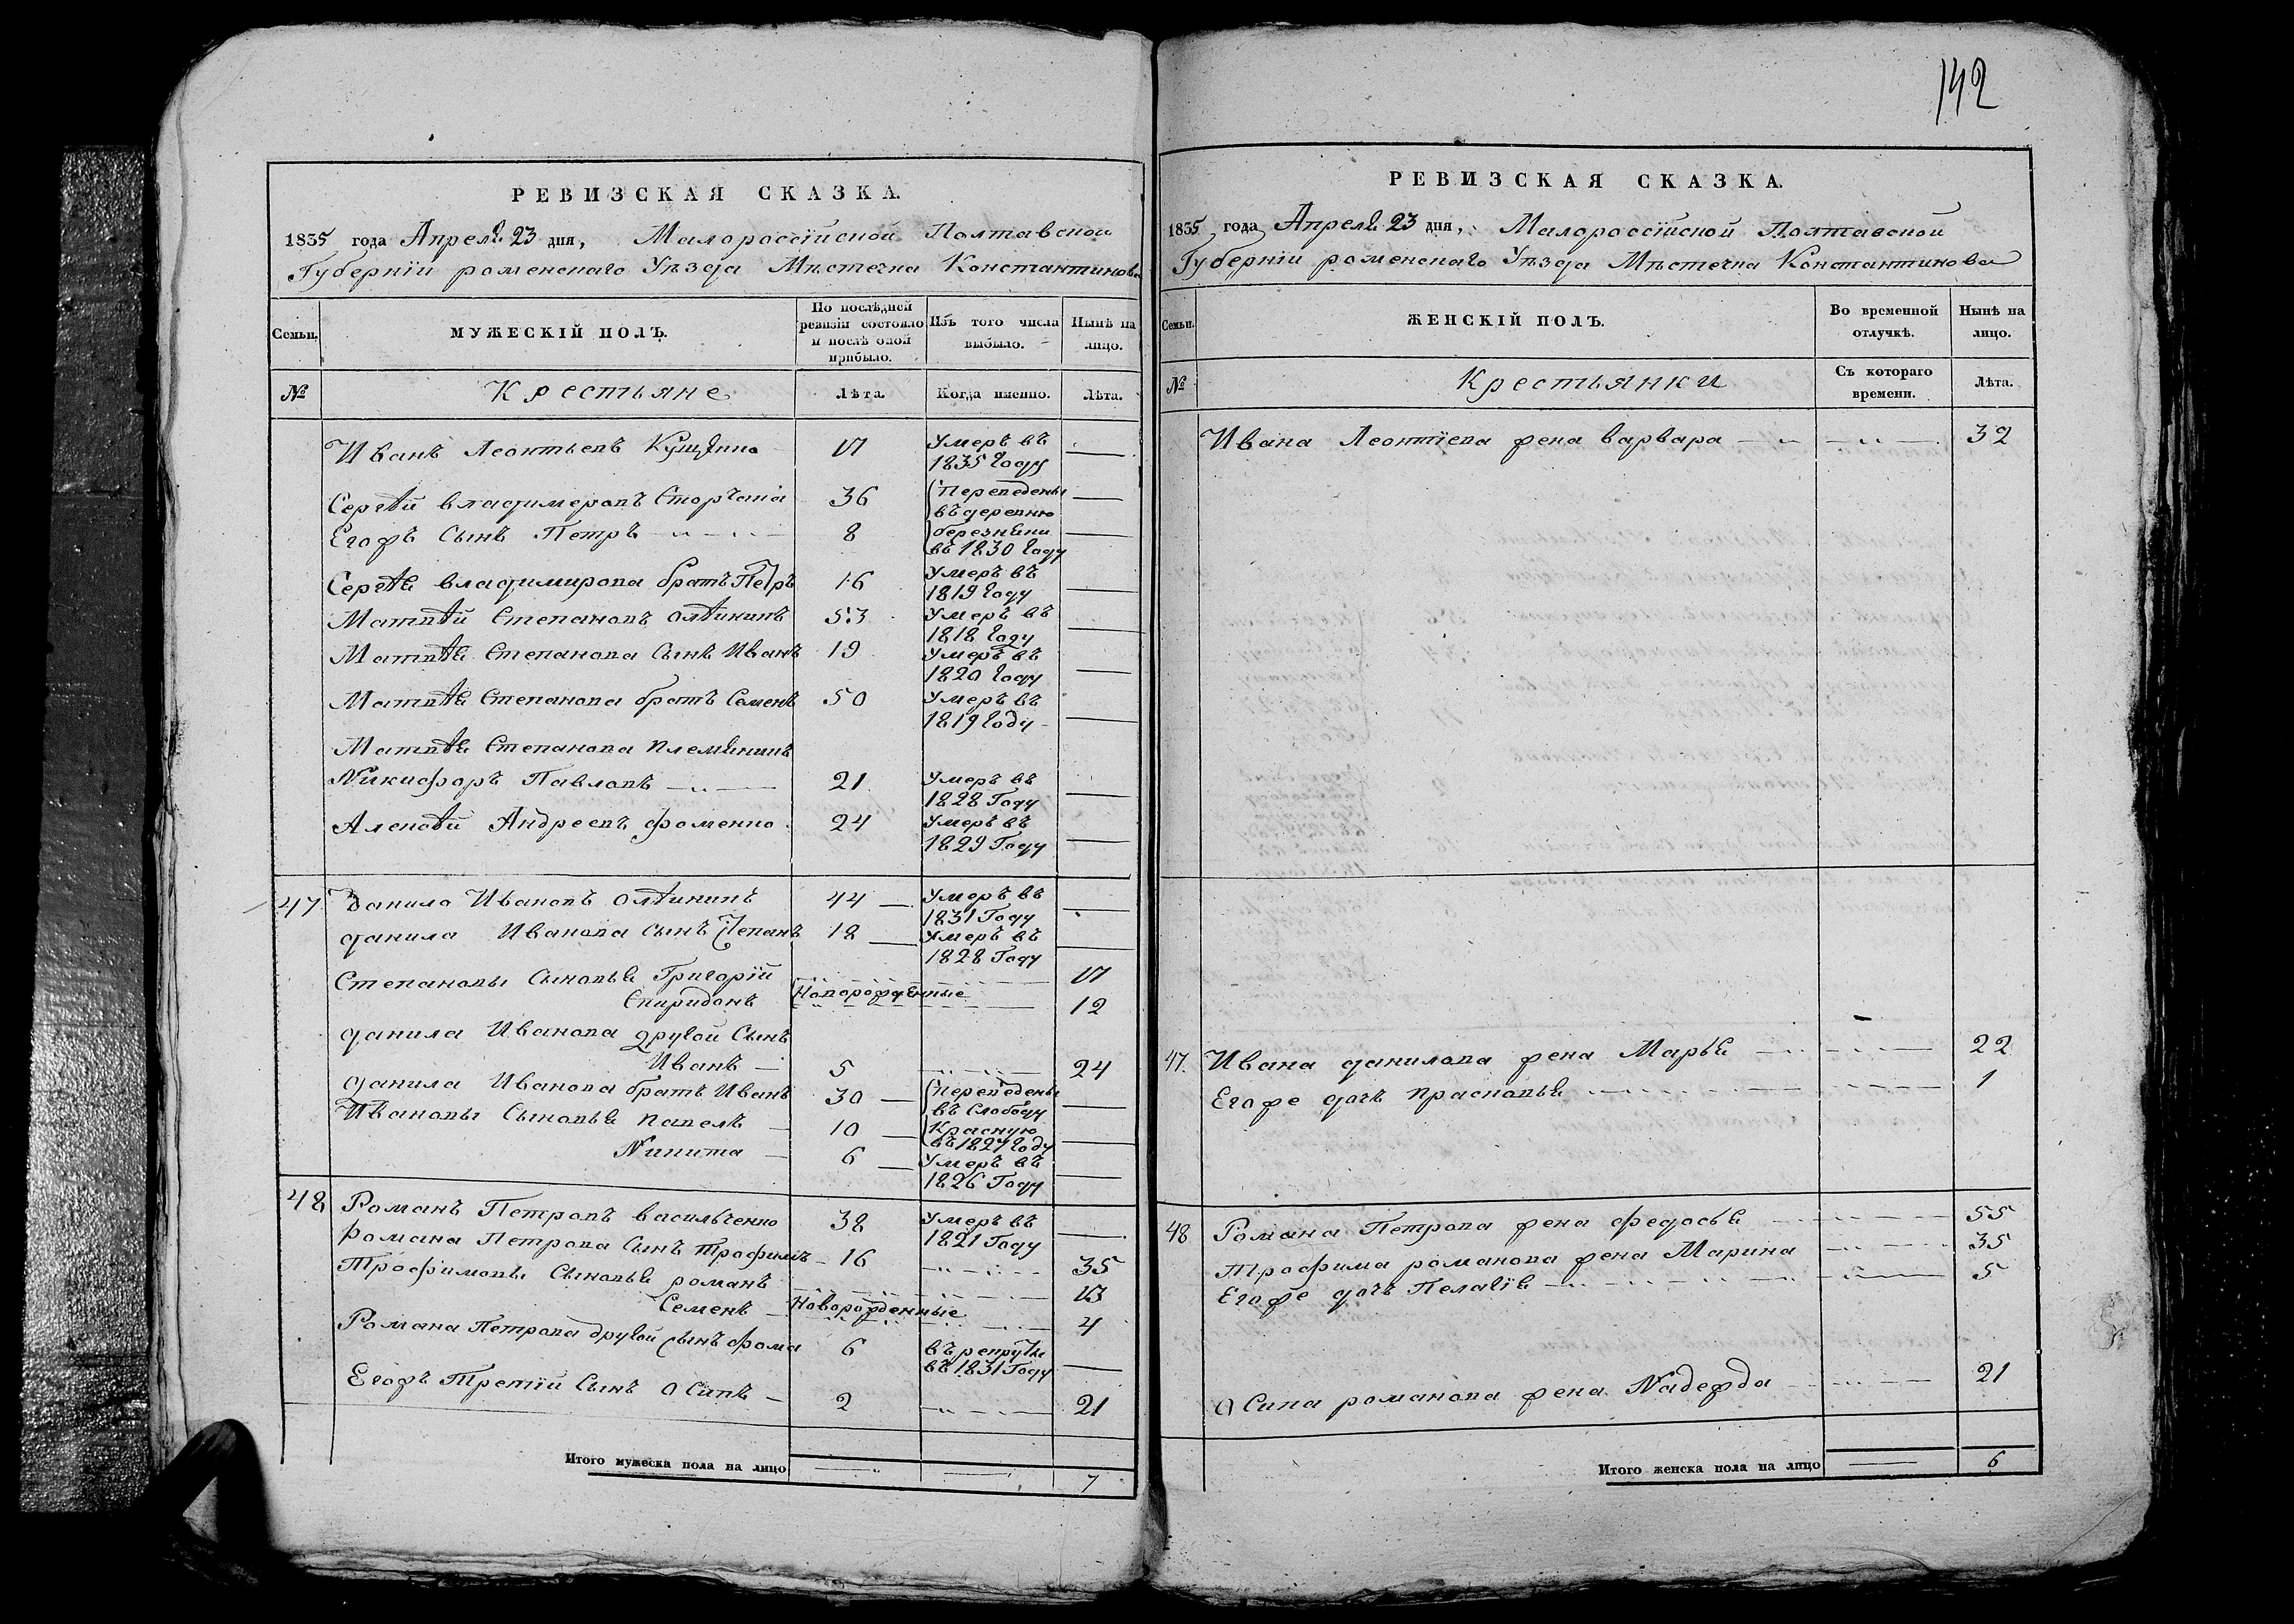 142
РЕВИЗСКАЯ СКАЗКА.
1835 года Апреля 23 дня, Малороссійской Полтавской
Губерніи роменскаго Уѣзда Мѣстечка Константинова
Семьи.
МУЖЕСКІЙ ПОЛЪ.
По послѣдней ревизіи состояло и послѣ оной прибыло.
Изъ того числа выбыло.
Нынѣ на лицо.
№
Крестьяне
Лѣта.
Когда именно.
Лѣта.
Иванъ Леонтьевъ 17 Умеръ въ
1835 году
Сергѣй владимеровъ 36 Переведены
въ деревню
Егожъ Сынъ Петръ 8
въ 1830 году
Сергѣя владимирова братъ Петръ 16 Умеръ въ
1819 году
Матвѣй Степановъ Олѣйникъ 53 Умеръ въ
1818 году
Матвѣя Степанова Сынъ Иванъ 19 Умеръ въ
1820 году
Матвѣя Степанова братъ Семенъ 50 Умеръ въ
1819 году
Матвѣя Степанова племянникъ
Никифоръ Павловъ 21 Умеръ въ
1828 Году
Алексѣй Андреевъ фоменко 24 Умеръ въ
1829 Году
47 Данило Ивановъ Олѣйникъ 44 Умеръ въ
1831 Году
данила Иванова Сынъ Степанъ 18 Умеръ въ
1828 Году
Степановы Сыновья Григорій 17
Спиридонъ Новорожденные 12
данила Иванова другой Сынъ
Иванъ 5 24
данила Иванова братъ Иванъ 30 Переведены
въ Слободу
Ивановы Сыновья павелъ 10 Красную
въ 1827 Году
Никита 6 Умеръ въ
1826 Году
48 Романъ Петровъ васильченко 38 Умеръ въ
1821 Году
Романа Петрова Сынъ Трофимъ 16 35
Трофимовы Сыновья романъ 13
Семенъ Новорожденные 4
Романа Петрова другой Сынъ фома 6 въ рекруты
въ 1831 Году
Егожъ Третій Сынъ Осипъ 2 21
Итого мужеска пола на лицо 7
РЕВИЗСКАЯ СКАЗКА.
1835 года Апреля 23 дня, Малороссійской Полтавской
Губерніи роменскаго Уѣзда Мѣстечка Константинова
Семьи.
ЖЕНСКІЙ ПОЛЪ.
Во временной отлучкѣ.
Нынѣ на лицо.
№
Крестьянки
Съ котораго времени.
Лѣта.
Ивана Леонтіева жена варвара 32
47. Ивана данилова жена Марья 22
Егоже дочь прасковья 1
48 Романа Петрова жена федосья 55
Трофима романова жена Марина 35
Егоже дочь Пелагія 5
Осипа романова жена Надежда 21
Итого женска пола на лицо 6